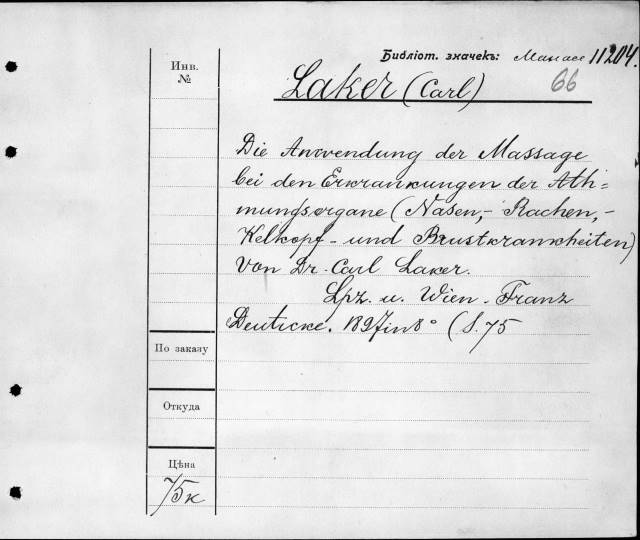 Библіот. значекъ: Массаж 11204.
Инв.
№
Laker (Carl)
66
Die Anwendung der Massage
bei den Erkrankungen der Ath=
mungsorgane (Nasen,- Rachen,-
Kelkopf- und Brustkrankheiten)
von Dr. Carl Laker.
Lpz. u. Wien. Franz
Deuticke. 1897 in 8° (S. 75
По заказу
Откуда
Цѣна
75к